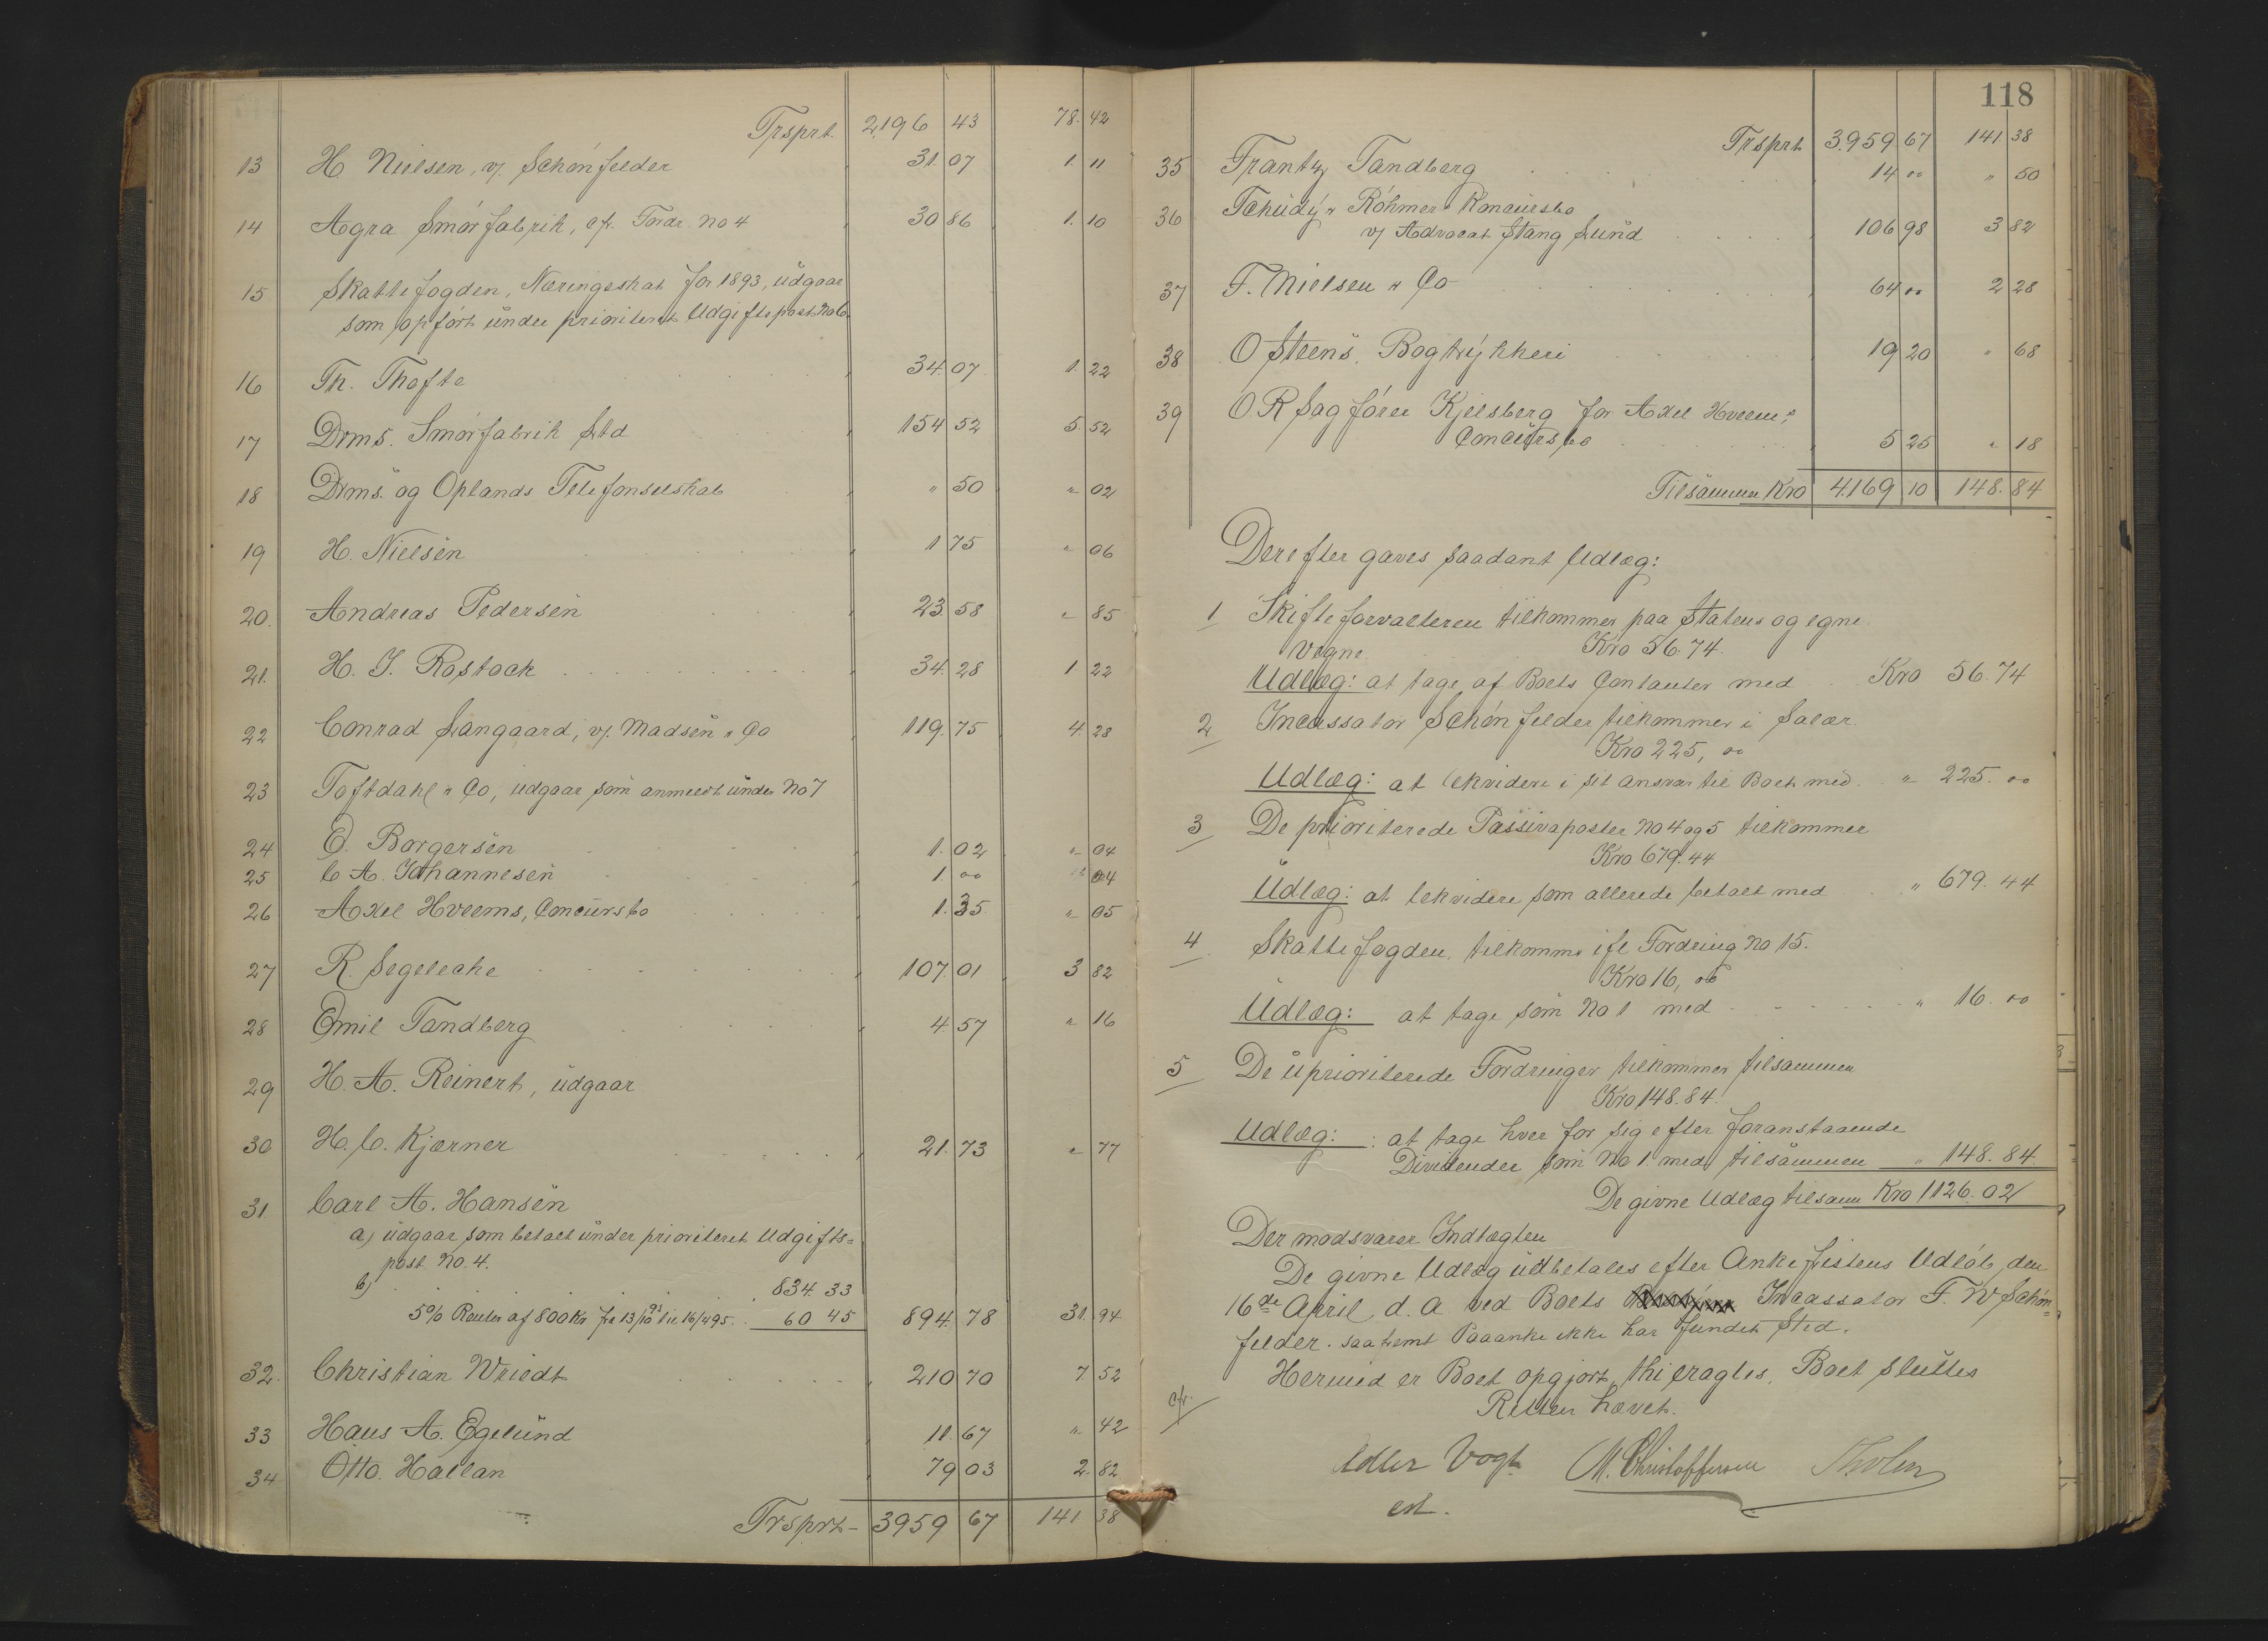 Trsprt. 2196 43 78. 42
13 H. Nielsen, v/. Schónfelder 31. 07 1. 11
14 Agra Smórfabrik, cfr. Fordr. No 4 30 86 1. 10
15 Skattefogden, Næringsskat for 1893, udgaar
som opfórt under prioriteret Udgiftspost No 6.
16 Th. Thofte 34. 07 1. 22
17 Drms. Smórfabrik Ltd 154 52 5. 52
18 Drms. og Oplands Telefonselskab " 50 " 02
19 H. Nielsen 1 75 " 06
20. Andreas Pedersen 23. 58 " 85
21. H. J. Rostock 34. 28 1 22
22 Conrad Langaard, v/. Madsen " Co 119. 75 4 28
23 Toftdahl " Co, udgaar som anmeldt under No 7
24 E. Borgersen 1. 02 " 04
25 C A. Johannesen 1. 00 " 04
26 Axel Hveems, Concursbo 1. 35 " 05
27 R. Segelcke 107. 01 3 82
28 Emil Tandberg 4 57 " 16
29 H. A. Reinert, udgaar
30 H. C. Kjærner 21. 73 " 77
31 Carl A. Hansen
a) udgaar som betalt under prioriteret Udgifts=
post No. 4.
b) 834. 33
5% Renter af 800 Kr fra 13/10 93 til 16/4 95. 60 45 894. 78 31. 94
32. Christian Wriedt 210 70 7 52
33 Hans A. Egelund 11. 67 " 42
34 Otto. Hallan 79 03 2. 82
Trsprt- 3959 67 141 38
118
Trsprt 3.959 67 141 38
35 Frantz Tandberg 14 00 " 50
36 Tchudy " Róhmers Koncursbo
v/ Advocat Stang Lund 106 98 3 82
37 F. Nielsen " Co 64 00 2 28
38 O Steens. Bogtrykkeri 19 20 " 68
39 O. R Sagfórer Kjelsberg for Axel Hveem's
Concursbo 5 25 " 18
Tilsammen Kro 4.169 10 148. 84
Derefter gaves saadant Udlæg:
1 Skifteforvalteren tilkommer paa Statens og egne
Vegne Kro 56. 74.
Udlæg: at tage af Boets Contanter med Kro 56. 74
2 Incassator Schónfelder tilkommer i Salær.
Kro 225, 00
Udlæg: at lekvidere i sit Ansvar til Boet med " 225. 00
3 De prioriterede Passivaposter No 4 og 5 tilkommer
Kro 679. 44
Udlæg: at lekvidere som allerede betalt med " 679. 44
4. Skattefogden. tilkommer ifl Fordring No 15.
Kro 16, 00
Udlæg: at tage som No 1 med " 16. 00
5 De uprioriterede Fordringer tilkommer tilsammen
Kro 148. 84.
Udlæg: : at tage hver for sig efter foranstaaende
Dividender som No 1 med tilsammen " 148. 84.
De givne Udlæg tilsam Kro 1126. 02
Der modsvarer Indtægten
De givne Udlæg udbetales efter Ankefristens Udlób, den
16de April d. A ved Boets Incassator F. W Schón=
felder. saafremt Paaanke ikke har fundet Sted.
Hermed er Boet opgjort, thi eragtes, Boet sluttes
cfr. Retten hævet.
Adler Vogt M. Christoffersen Tholen
cst.